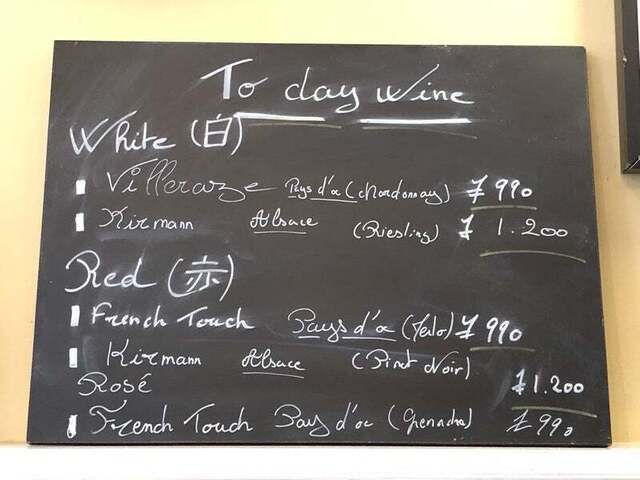 To day Wine
White (白)
Villeraze Pays d'oc (chardonnay) ¥ 990
Kirmann Alsace (Riesling) ¥ 1.200
Red (赤)
French Touch Pays d'oc (Merlo) ¥ 990
Kirmann Alsace (Pinot Noir) ¥ 1.200
Rosé
French Touch Pays d'oc ¥ 990